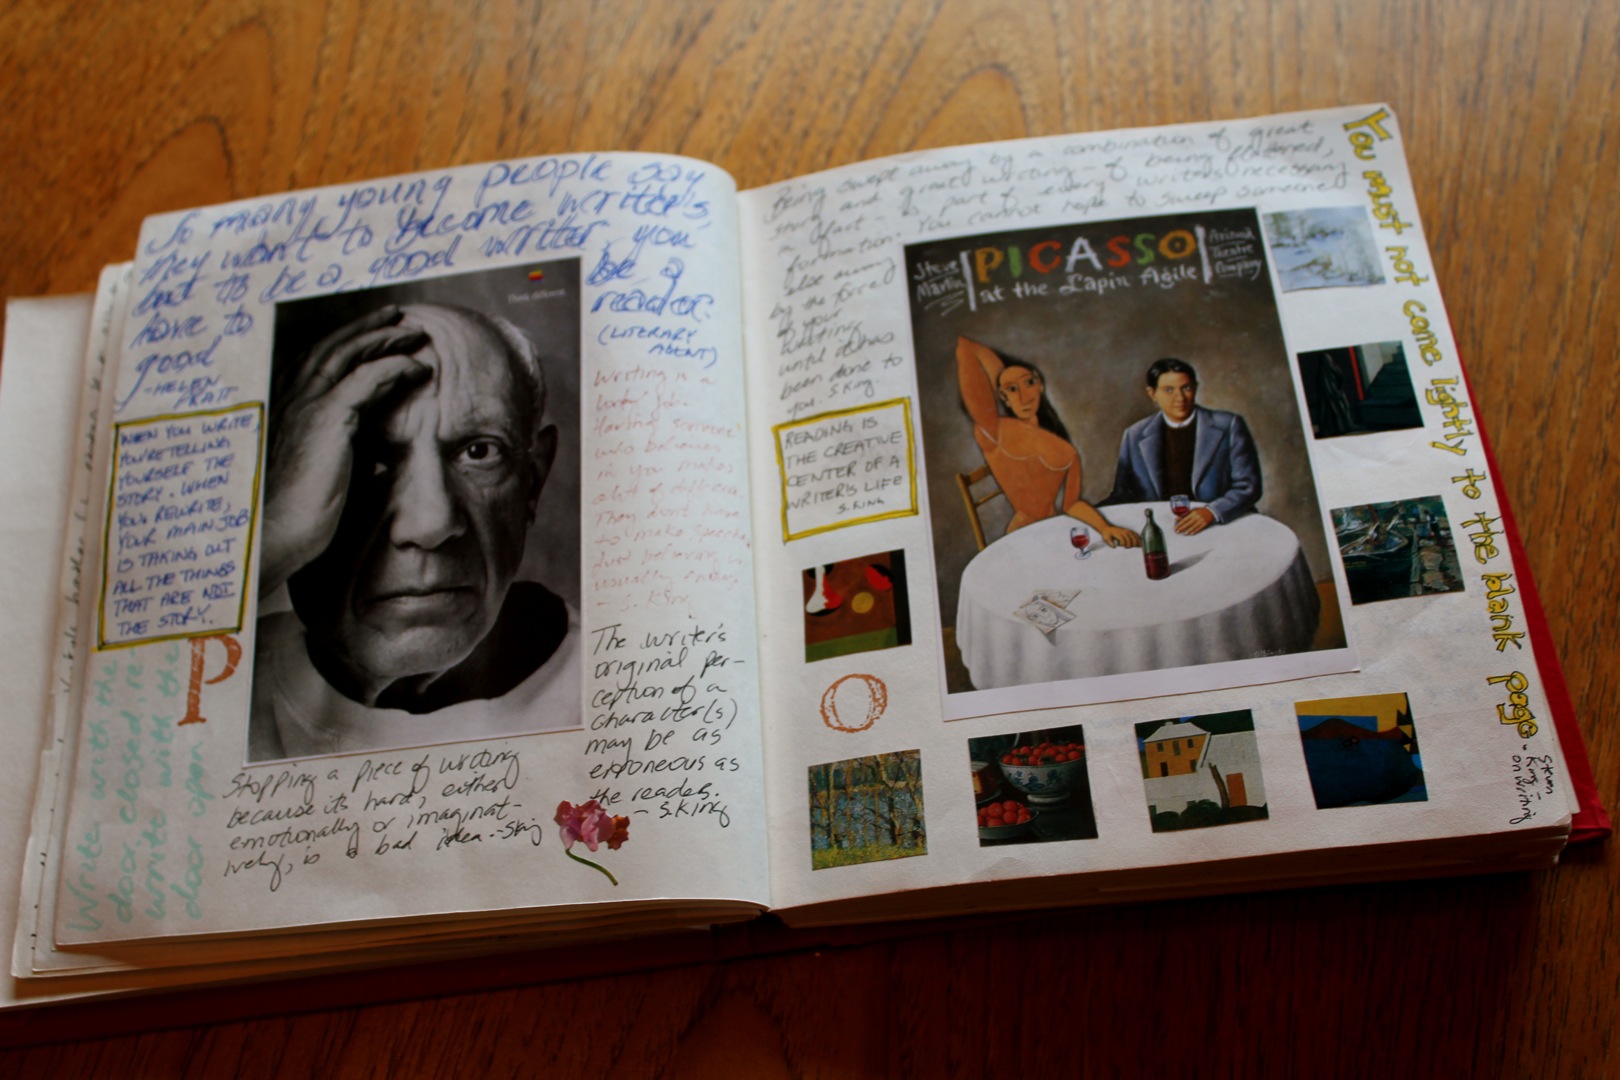 So many young people say
they want to become writer's,
but to be a good writer, you
have to
be a
good
reader.
(LITERARY
AGENT)
-HELEN
PRATT
WHEN YOU WRITE,
YOU'RE TELLING
YOURSELF THE
STORY. WHEN
YOU REWRITE,
YOUR MAIN JOB
IS TAKING OUT
ALL THE THINGS
THAT ARE NOT
THE STORY.
P
Write with the
door closed, re-
write with the
door open
Think different.
Writing is a
lonely job.
Having someone
who believes
in you makes
a lot of differen
They don't have
to make speeches.
Just believing is
usually enough
- S. King
The writer's
original per-
ception of a
character(s)
may be as
erroneous as
the readers.
- S.King
Stopping a piece of writing
because its hard, either
emotionally or imaginat-
ively, is a bad idea.-Sking
Being swept away by a combination of great
story and great writing - of being flattened,
in fact - is part of every writers necessary
formation. You cannot hope to sweep someone
else away
by the force
of your
writing
until it has
been done to
you. S.King.
READING IS
THE CREATIVE
CENTER OF A
WRITER'S LIFE
S.KING
O
Steve
Martin
PICASSO
at the Lapin Agile
Arizona
Theatre
Company
You must not come lightly to the blank page.
Stephen
King -
on writing